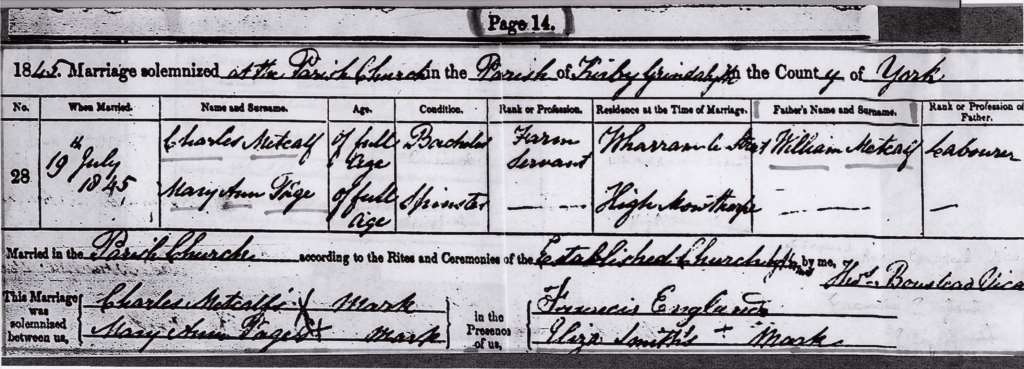 Page 14.
1845. Marriage solemnized at the Parish Church in the Parish of Kirby Grindalyth in the County of York
No. When Married. Name and Surname. Age. Condition. Rank or Profession. Residence at the Time of Marriage. Father's Name and Surname. Rank or Profession of Father.
28 19th July 1845 Charles Metcalf of full Age Bachelor Farm Servant Wharram le Street William Metcalf Labourer
Mary Ann Page of full age Spinster — — — High Mowthorpe — — —
Married in the Parish Church according to the Rites and Ceremonies of the Established Church by me,
Thos. Boustead Vicar
This Marriage was solemnized between us, Charles Metcalf's X mark
Mary Ann Page's + mark
in the Presence of us, Francis England
Eliza Smith's + Mark